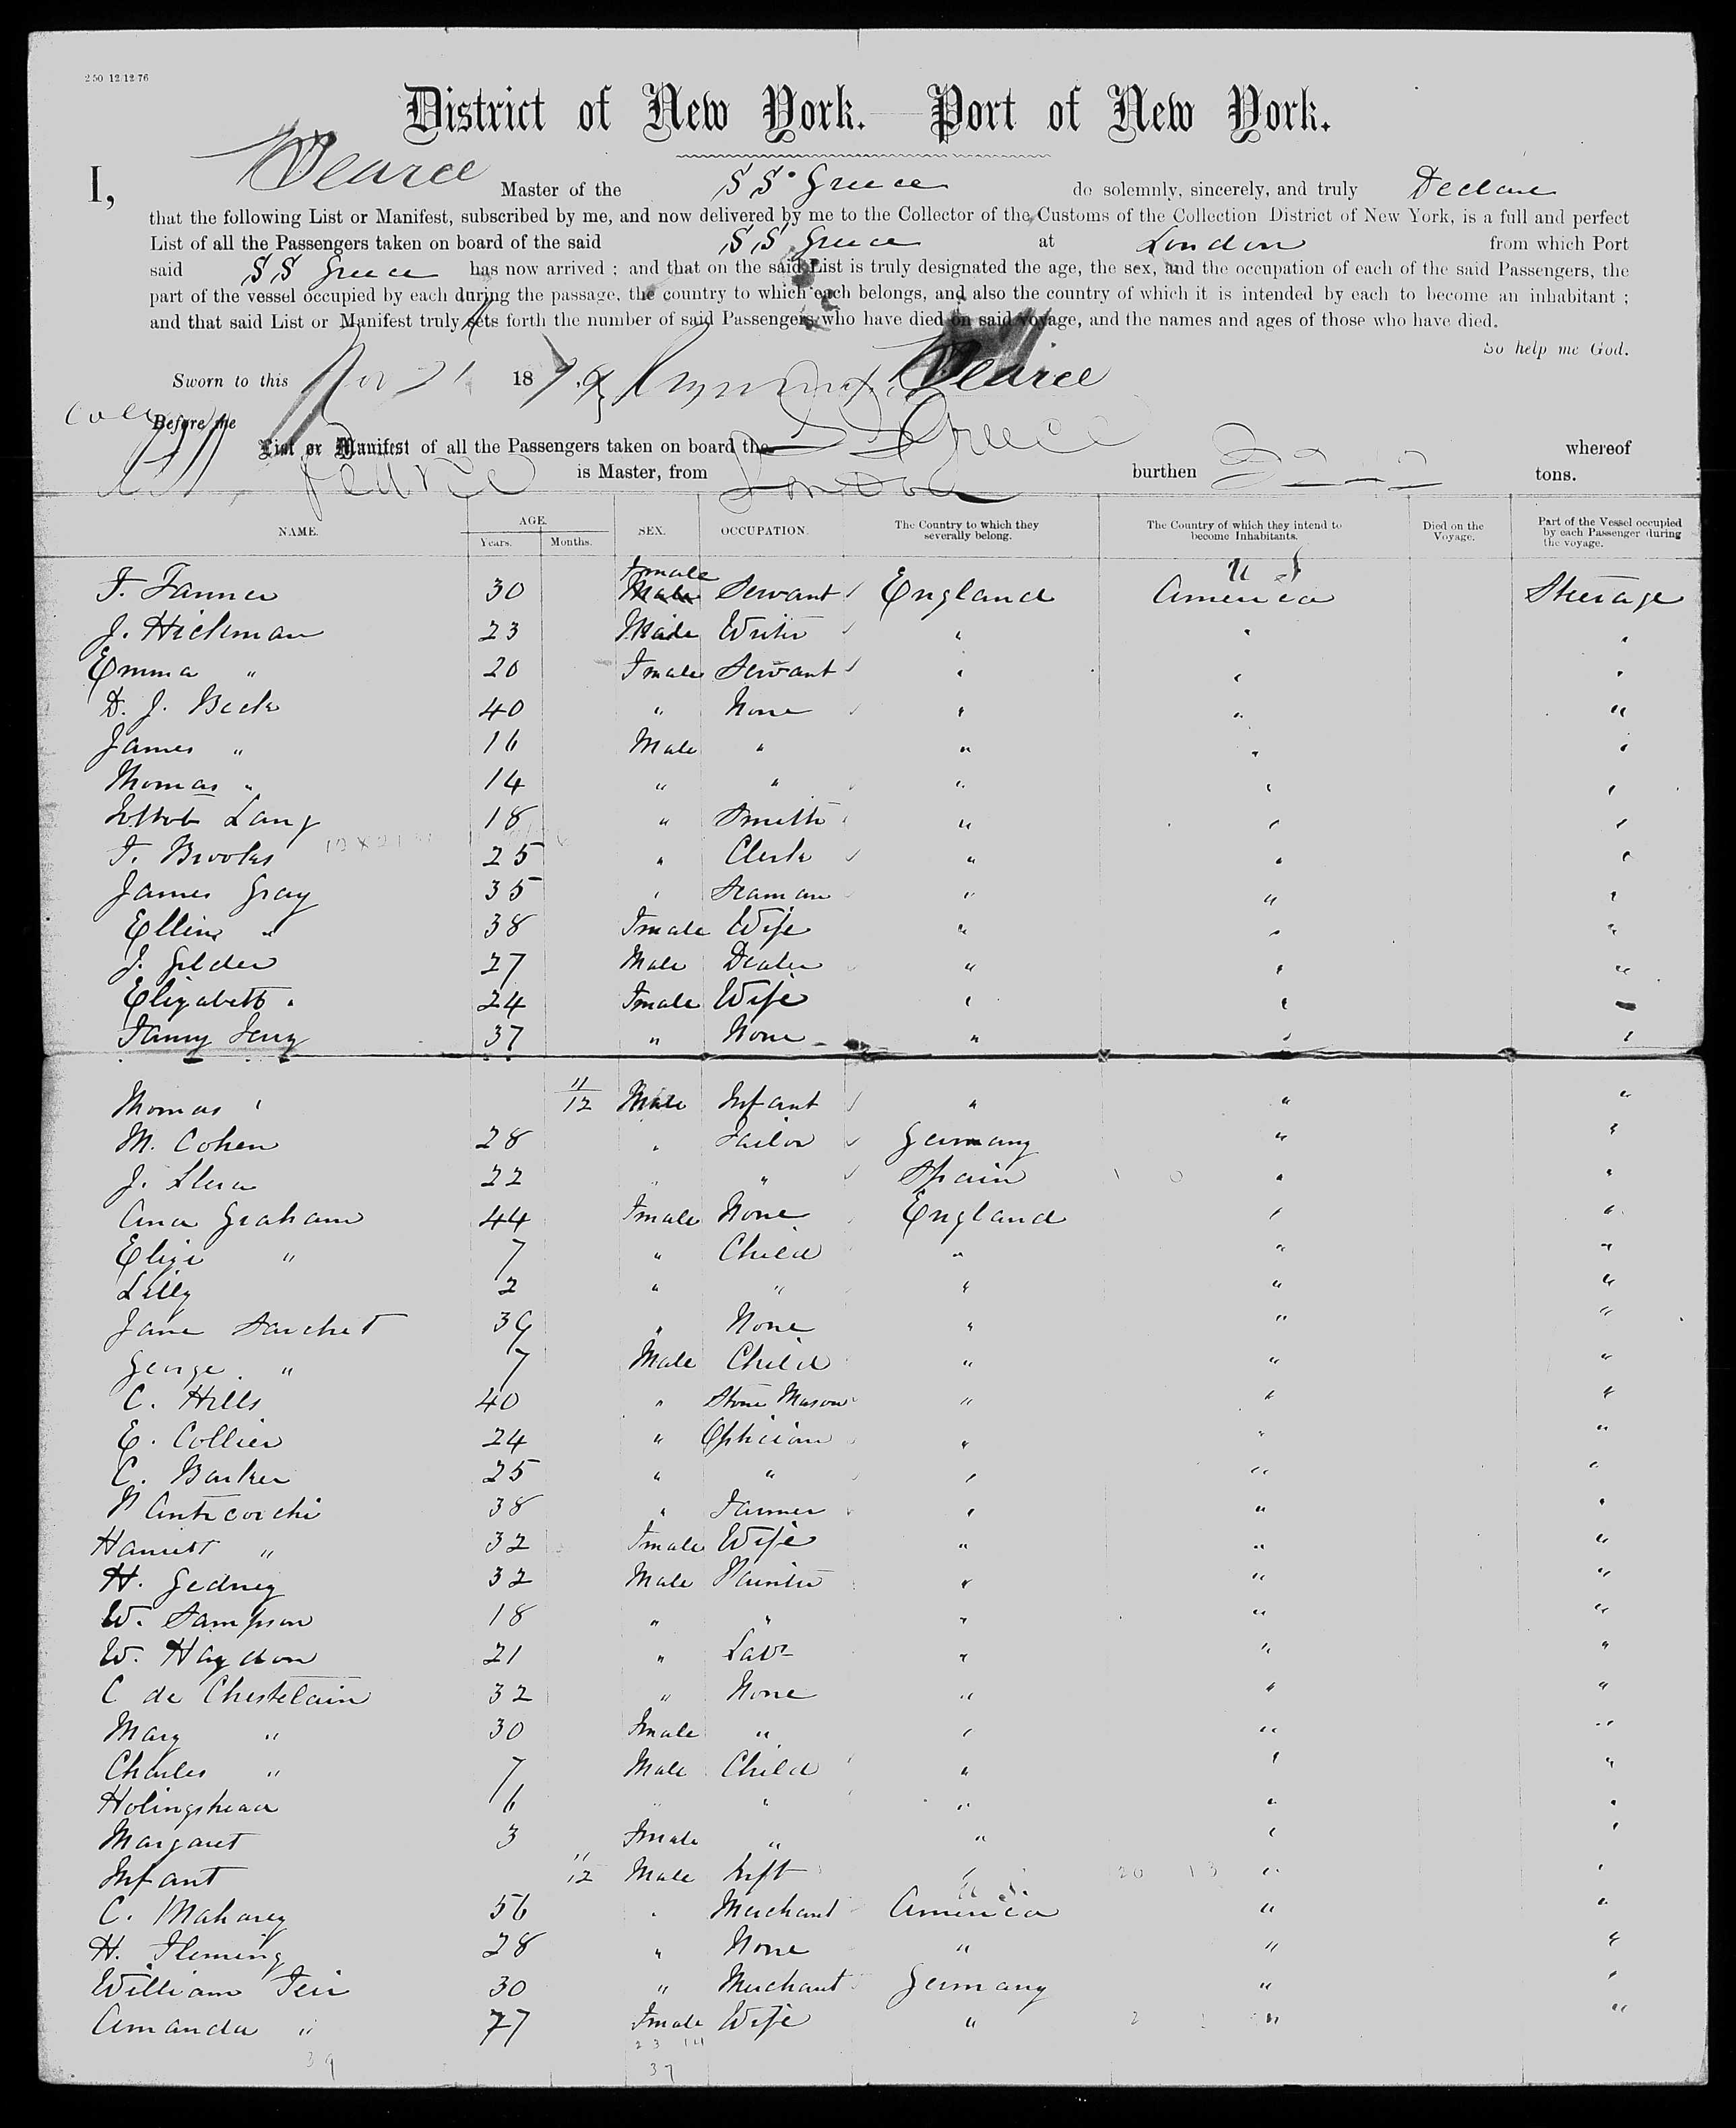 250 12/12/76
District of New York.—Port of New York.
I, Pearce Master of the SS. Greece do solemnly, sincerely, and truly Declare
that the following List or Manifest, subscribed by me, and now delivered by me to the Collector of the Customs of the Collection District of New York, is a full and perfect
List of all the Passengers taken on board of the said SS Greece at London from which Port
said SS Greece has now arrived ; and that on the said List is truly designated the age, the sex, and the occupation of each of the said Passengers, the
part of the vessel occupied by each during the passage, the country to which each belongs, and also the country of which it is intended by each to become an inhabitant ;
and that said List or Manifest truly sets forth the number of said Passengers who have died on said voyage, and the names and ages of those who have died.
So help me God.
Sworn to this Nov 21 1879 Pearce
Before me
List or Manifest of all the Passengers taken on board the SS Greece whereof
Pearce is Master, from London burthen tons.
NAME. AGE. SEX. OCCUPATION. The Country to which they severally belong. The Country of which they intend to become Inhabitants. Died on the Voyage. Part of the Vessel occupied by each Passenger during the voyage.
Years. Months.
Female U S
30 Male Servant England America Steerage
J. Hickman 23 Male Writer " " "
Emma " 20 Fmale Servant " " "
D. J. Beck 40 " None " " "
James " 16 Male " " " "
Thomas " 14 " " " " "
Lang 18 " Smith " " "
F. Brooks 25 " Clerk " " "
James Gray 35 " Seaman " " "
Ellen " 38 Fmale Wife " " "
J. Gilder 27 Male Dealer " " "
Elizabeth " 24 Fmale Wife " " "
Fanny 37 " None " " "
Thomas " 11/12 Male Infant " " "
M. Cohen 28 " Tailor Germany " "
J. 22 " " Spain " "
Ana Graham 44 Fmale None England " "
Eliza " 7 " Child " " "
Lilly 2 " " " " "
Jane Sarchet 39 " None " " "
George " 7 Male Child " " "
C. Hills 40 " Stone Mason " " "
E. Collier 24 " Optician " " "
C. Barker 25 " " " " "
38 " Farmer " " "
Harriett " 32 Fmale Wife " " "
H. Gedney 32 Male Painter " " "
W. Sampson 18 " " " " "
W. Haydon 21 " Labr " " "
C de Chestelain 32 " None " " "
Mary " 30 Fmale " " " "
Charles " 7 Male Child " " "
Holingshead 6 " " " " "
Margaret 3 Fmale " " " "
Infant 11/12 Male Inft " " "
U S
C. Maharey 56 " Merchant America " "
H. Fleming 28 " None " " "
William 30 " Merchant Germany " "
Amanda " 77 Fmale Wife " " "
23 14
39 37